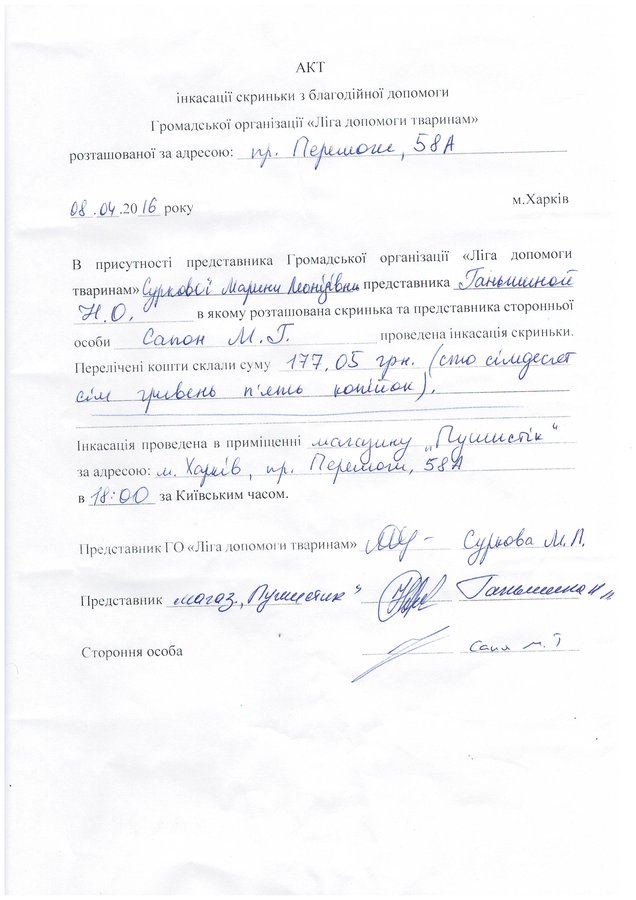 АКТ
інкасації скриньки з благодійної допомоги
Громадської організації «Ліга допомоги тваринам»
розташованої за адресою: пр. Перемоги, 58А
08.04.2016 року м.Харків
В присутності представника Громадської організації «Ліга допомоги
тваринам» Суркової Марини Леонідівни представника Ганьшиной
Н.О. в якому розташована скринька та представника сторонньої
особи Сапон М.Г. проведена інкасація скриньки.
Перелічені кошти склали суму 177,05 грн. (сто сімдесят
сім гривень п'ять копійок).
Інкасація проведена в приміщенні магазину „Пушистік“
за адресою: м. Харків, пр. Перемоги, 58А
в 18:00 за Київським часом.
Представник ГО «Ліга допомоги тваринам» Суркова М.Л.
Представник магаз. „Пушистик“ Ганьшина
Стороння особа